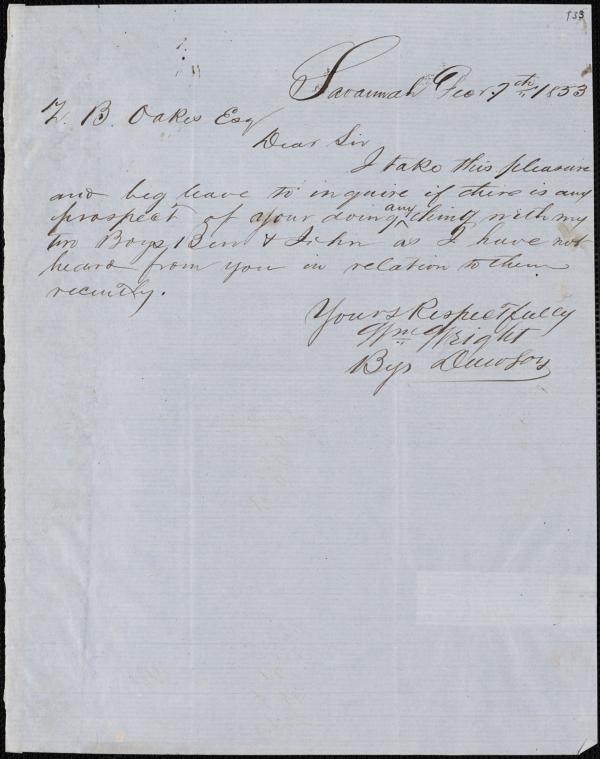 Savannah Feby 7th 1853
Z. B. Oakes Esq
Dear Sir
I take this pleasure
and beg leave to inquire if there is any
prospect of your doing any thing with my
two Boys Ben & John as I have not
heard from you in relation to them
recently.
Yours Respectfully
Wm Wright